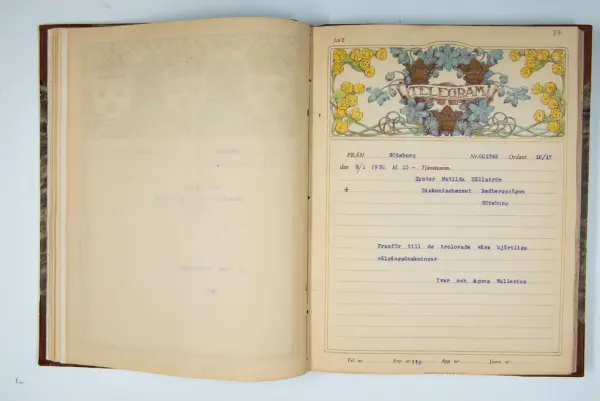 Lx 2
TELEGRAM
FRÅN Göteborg Nr 001548 Ordant. 18/17
den 8/1 1930 kl 10 - Tjänsteanm.
Syster Matilda Hällström
+ Diakonisshemmet Redbergsvägen
Göteborg
Framför till de trolovade våra hjärtliga
välgångsönskningar
Ivar och Agnes Wallerius
Tel. nr Exp. nr App. nr Journ. nr